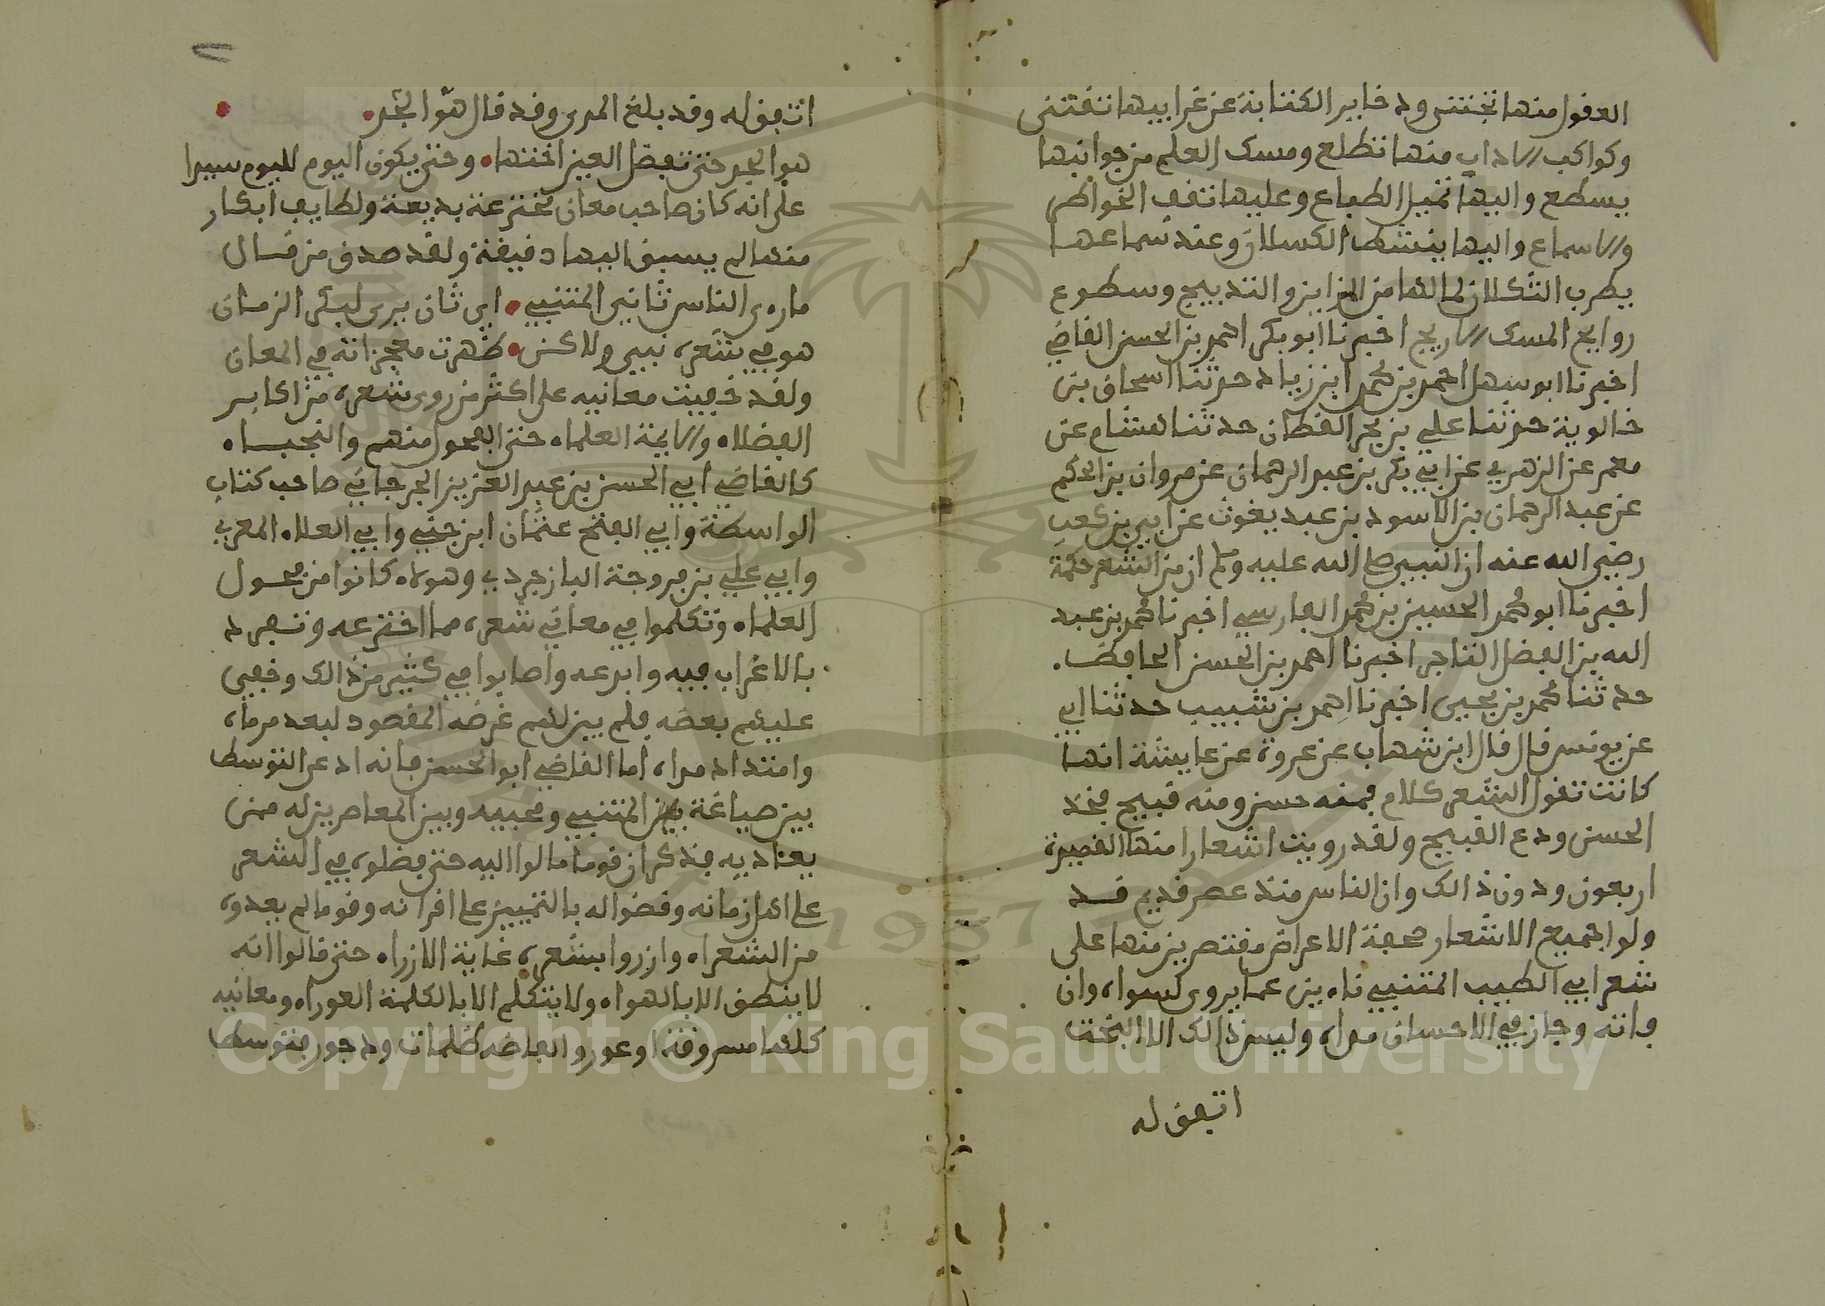 العقول منها تجتنى وذخاير الكتابة عن غرايبها تقتنى
وكواكب الاداب منها تطلع ومسك العلم من جوانبها
يسطع واليها تميل الطباع وعليها تقف الخواطر
والاسماع واليها ينشط الكسلان وعند سماعها
يطرب الثكلان لما لها من المزاين والتدبيج وسطوع
روايح المسك الاريج اخبرنا ابو بكر احمد بن الحسن القاضي
اخبرنا ابو سهل احمد بن محمد ابن زياد حدثنا اسحاق بن
خالوية حدثنا علي بن بحر القطان حدثنا هشام عن
معمر عن الزهري عن ابي بكر بن عبد الرحمان عن مروان بن الحكم
عن عبد الرحمان بن الاسود بن عبد يغوث عن ابي بن كعب
رضي الله عنه ان النبي صلى الله عليه وسلم ان من الشعر حكمة
اخبرنا ابو محمد الحسين بن محمد الفارسي اخبرنا محمد بن عبد
الله بن الفضل التاجر اخبرنا احمد بن الحسن الحافظ.
حدثنا محمد بن يحيى اخبرنا احمد بن شبيب حدثنا ابي
عن يونس قال قال ابن شهاب عن عروة عن عايشة انها
كانت تقول الشعر كلام فمنه حسن ومنه قبيح فخذ
الحسن ودع القبيح ولقد رويت اشعارا منها القصيرة
اربعون ودون ذالك وان الناس منذ عصر قديم قد
ولوا جميع الاشعار صفحة الاعراض مقتصرين منها على
شعر ابي الطيب المتنبي ناءين عما يروى لسواه وان
فاته وجاز في الاحسان مداه وليس ذالك الا البخت
اتفق له
اتفق له وقد بلغ المدى وقد قال هو الجد •
هو الجد حتى تفضل العين اختها • وحتى يكون اليوم لليوم سيدا
على انه كان صاحب معان مخترعة بديعة ولطايف ابكار
منها لم يسبق اليها دقيقة ولقد صدق من قال
ما رءى الناس ثاني المتنبي • اي ثان يرى لبكر الزمان
هو في شعره نبي ولاكن • ظهرت معجزاته في المعان
ولقد خفيت معانيه على اكثر من روى شعره من اكابر
الفضلاء والايمة العلماء حتى الفحول منهم والنجباء
كالقاضي ابي الحسن بن عبد العزيز الجرجاني صاحب كتاب
الواسطة وابي الفتح عثمان ابن جني وابي العلاء المعري
وابي علي بن فروجة البازجردي وهولاء كانوا من فحول
العلماء وتكلموا في معاني شعره مما اخترعه وتفرد
بالاغراب فيه وابدعه واصابوا في كثير من ذالك وخفي
عليهم بعضه فلم يبن لهم غرضه المقصود لبعد مرماه
وامتداد مداه اما القاضي ابو الحسن فانه ادعى التوسط
بين صياغة المتنبي ومحبيه وبين المعاصرين له ممن
يعاديه فذكر ان قوما مالوا اليه حتى فضلوه في الشعر
على اهل زمانه وقضوا له بالتمييز على اقرانه وقوما لم يعدوه
من الشعراء وازروا بشعره غاية الازراء حتى قالوا انه
لا ينطق الا بالهواء ولا يتكلم الا بالكلمة العوراء ومعانيه
كلها مسروقة او عور والفاضه ظلمات ودجور فتوسط
Copyright © King Saud University
1957